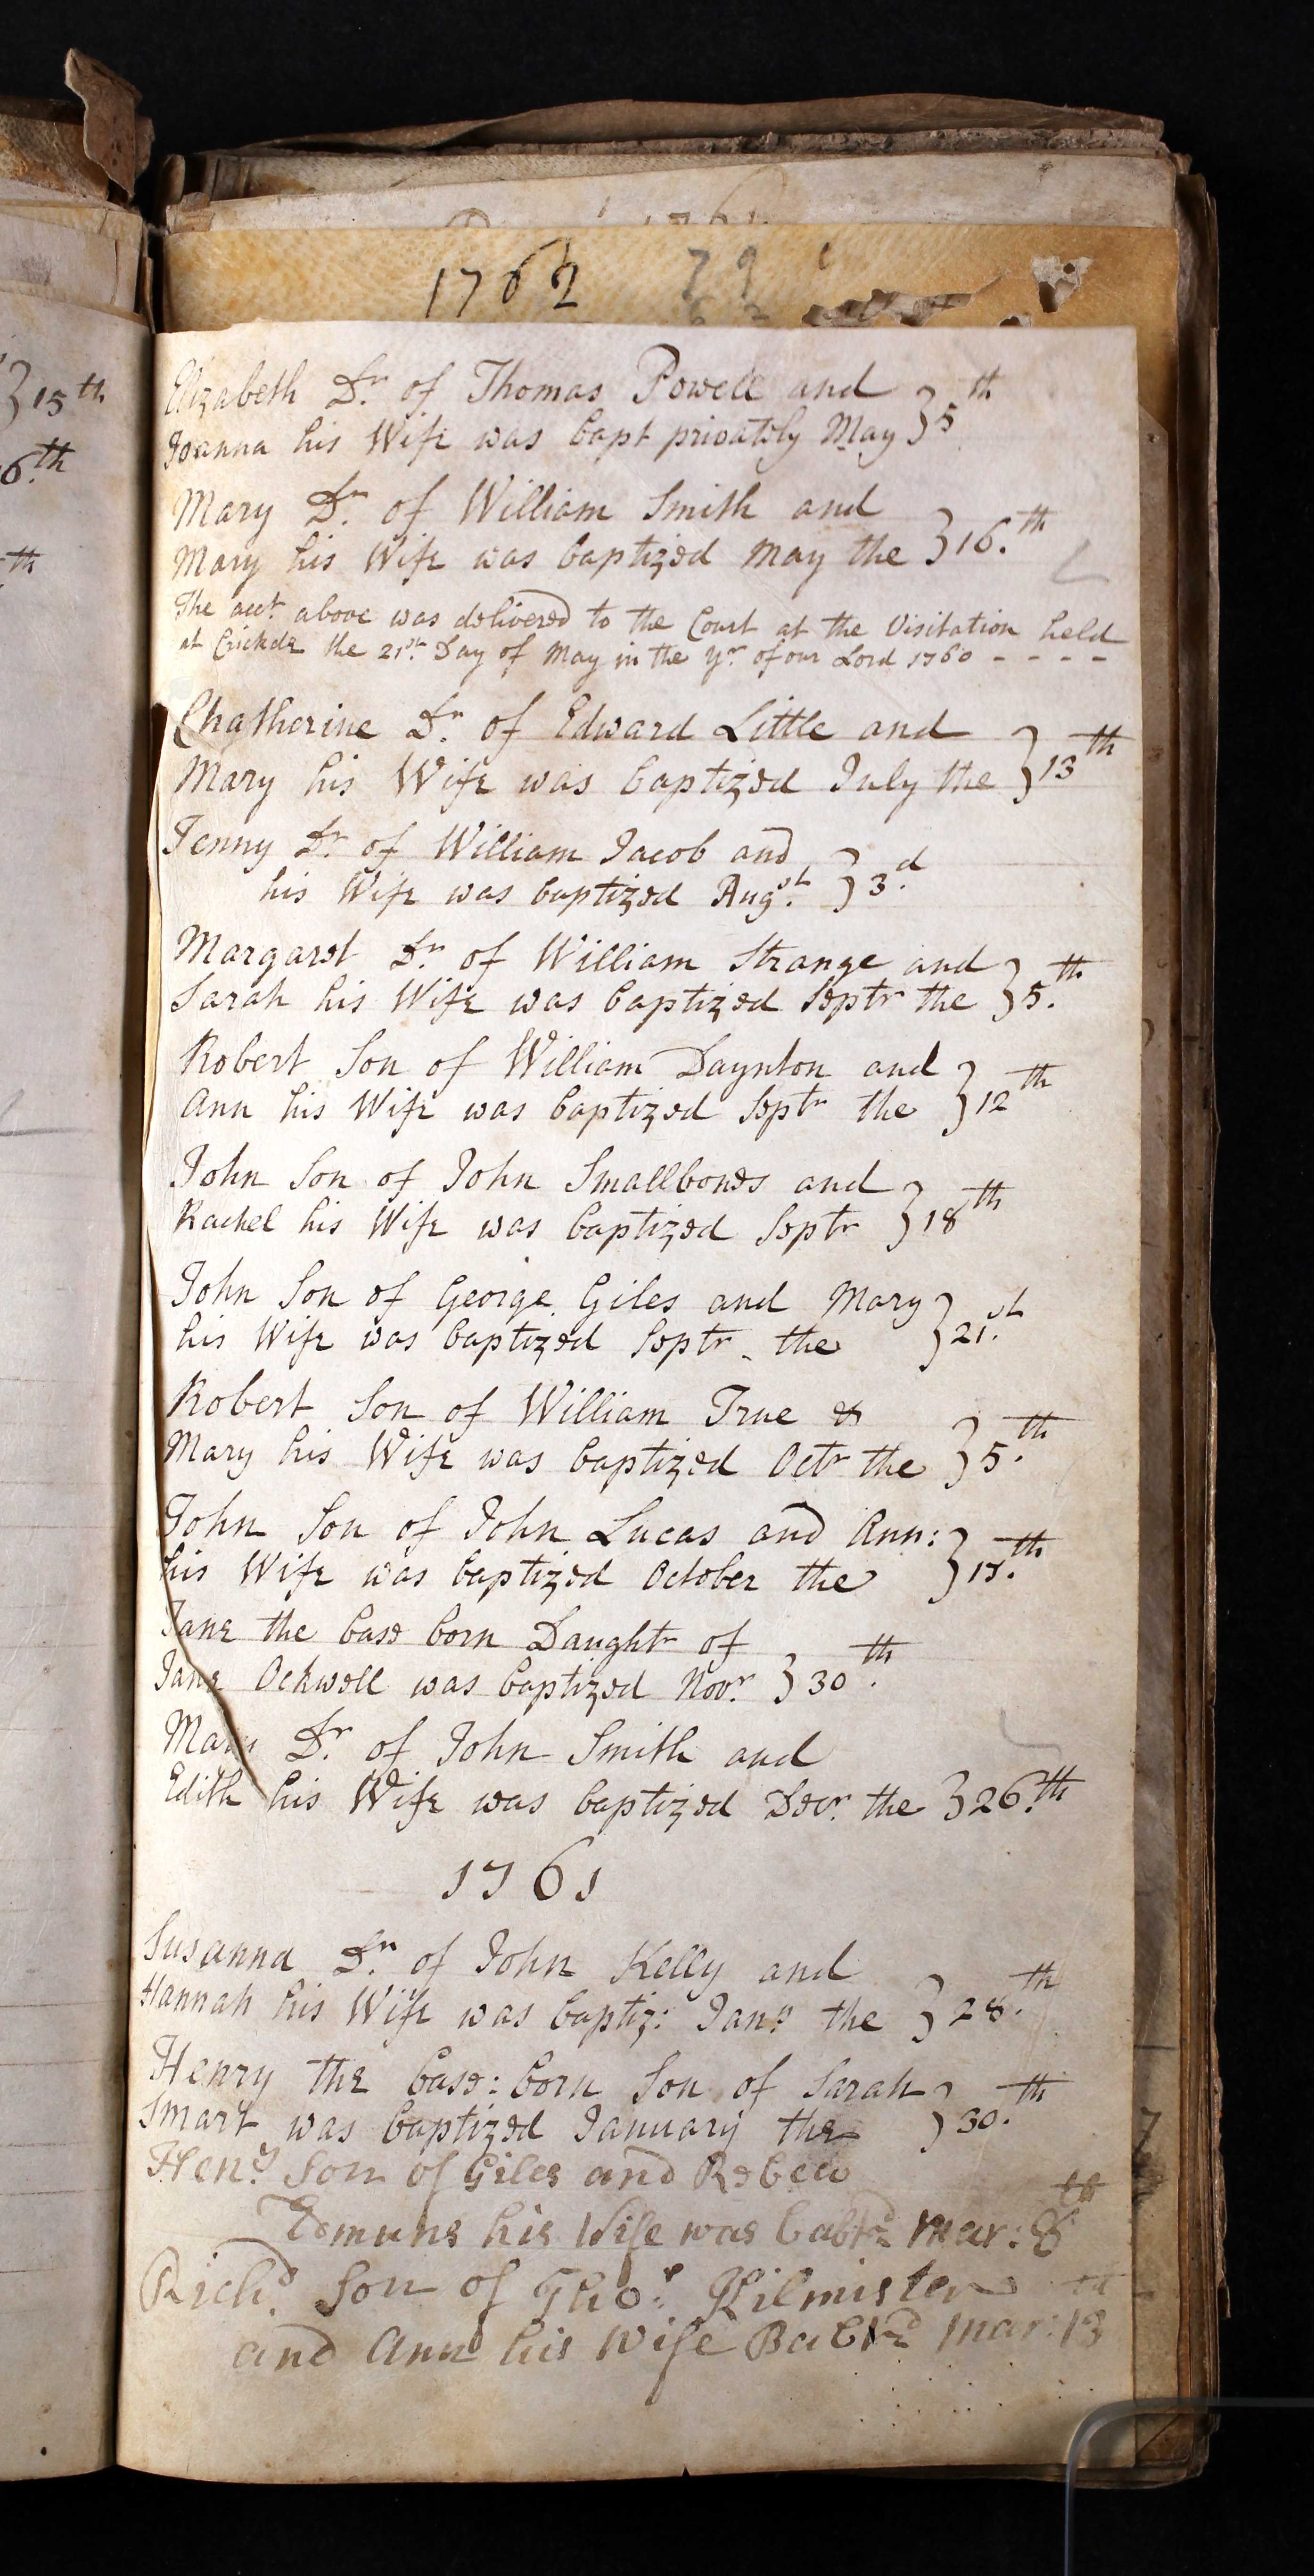 1762
79
15th
6.th
th
Elizabeth Dr. of Thomas Powell and
Joanna his Wife was bapt privately May } 5th
Mary Dr. of William Smith and
Mary his Wife was baptized May the } 16.th
The acct. above was delivered to the Court at the Visitation held
at Crickde the 21st. Day of May in the yr. of our Lord 1760 - - - -
Chatherine Dr. of Edward Little and
Mary his Wife was baptized July the } 13th
Jenny Dr. of William Jacob and
his Wife was baptized Augst. } 3.d
Margaret Dr. of William Strange and
Sarah his Wife was baptized Septr the } 5.th
Robert Son of William Daynton and
Ann his Wife was baptized Septr the } 12th
John Son of John Smallbones and
Rachel his Wife was baptized Septr } 18th
John Son of George Giles and Mary
his Wife was baptized Septr - the } 21.st
Robert Son of William True &
Mary his Wife was baptized Octr the } 5.th
John Son of John Lucas and Ann:
his Wife was baptized October the } 17.th
Jane the base born Daughtr of
Jane Ockwell was baptized Novr. } 30.th
Mary Dr. of John Smith and
Edith his Wife was baptized Decr. the } 26.th
1761
Susanna Dr. of John Kelly and
Hannah his Wife was baptiz: Jany. the } 28.th
Henry the base: born Son of Sarah
Smart was baptized January the } 30.th
Heny. Son of Giles and Rebeca
Edmuns his Wife was babtzd Mar: 8th
Richd. Son of Thos. Kilmister
and Ann his Wife Babtzd Mar: 13th